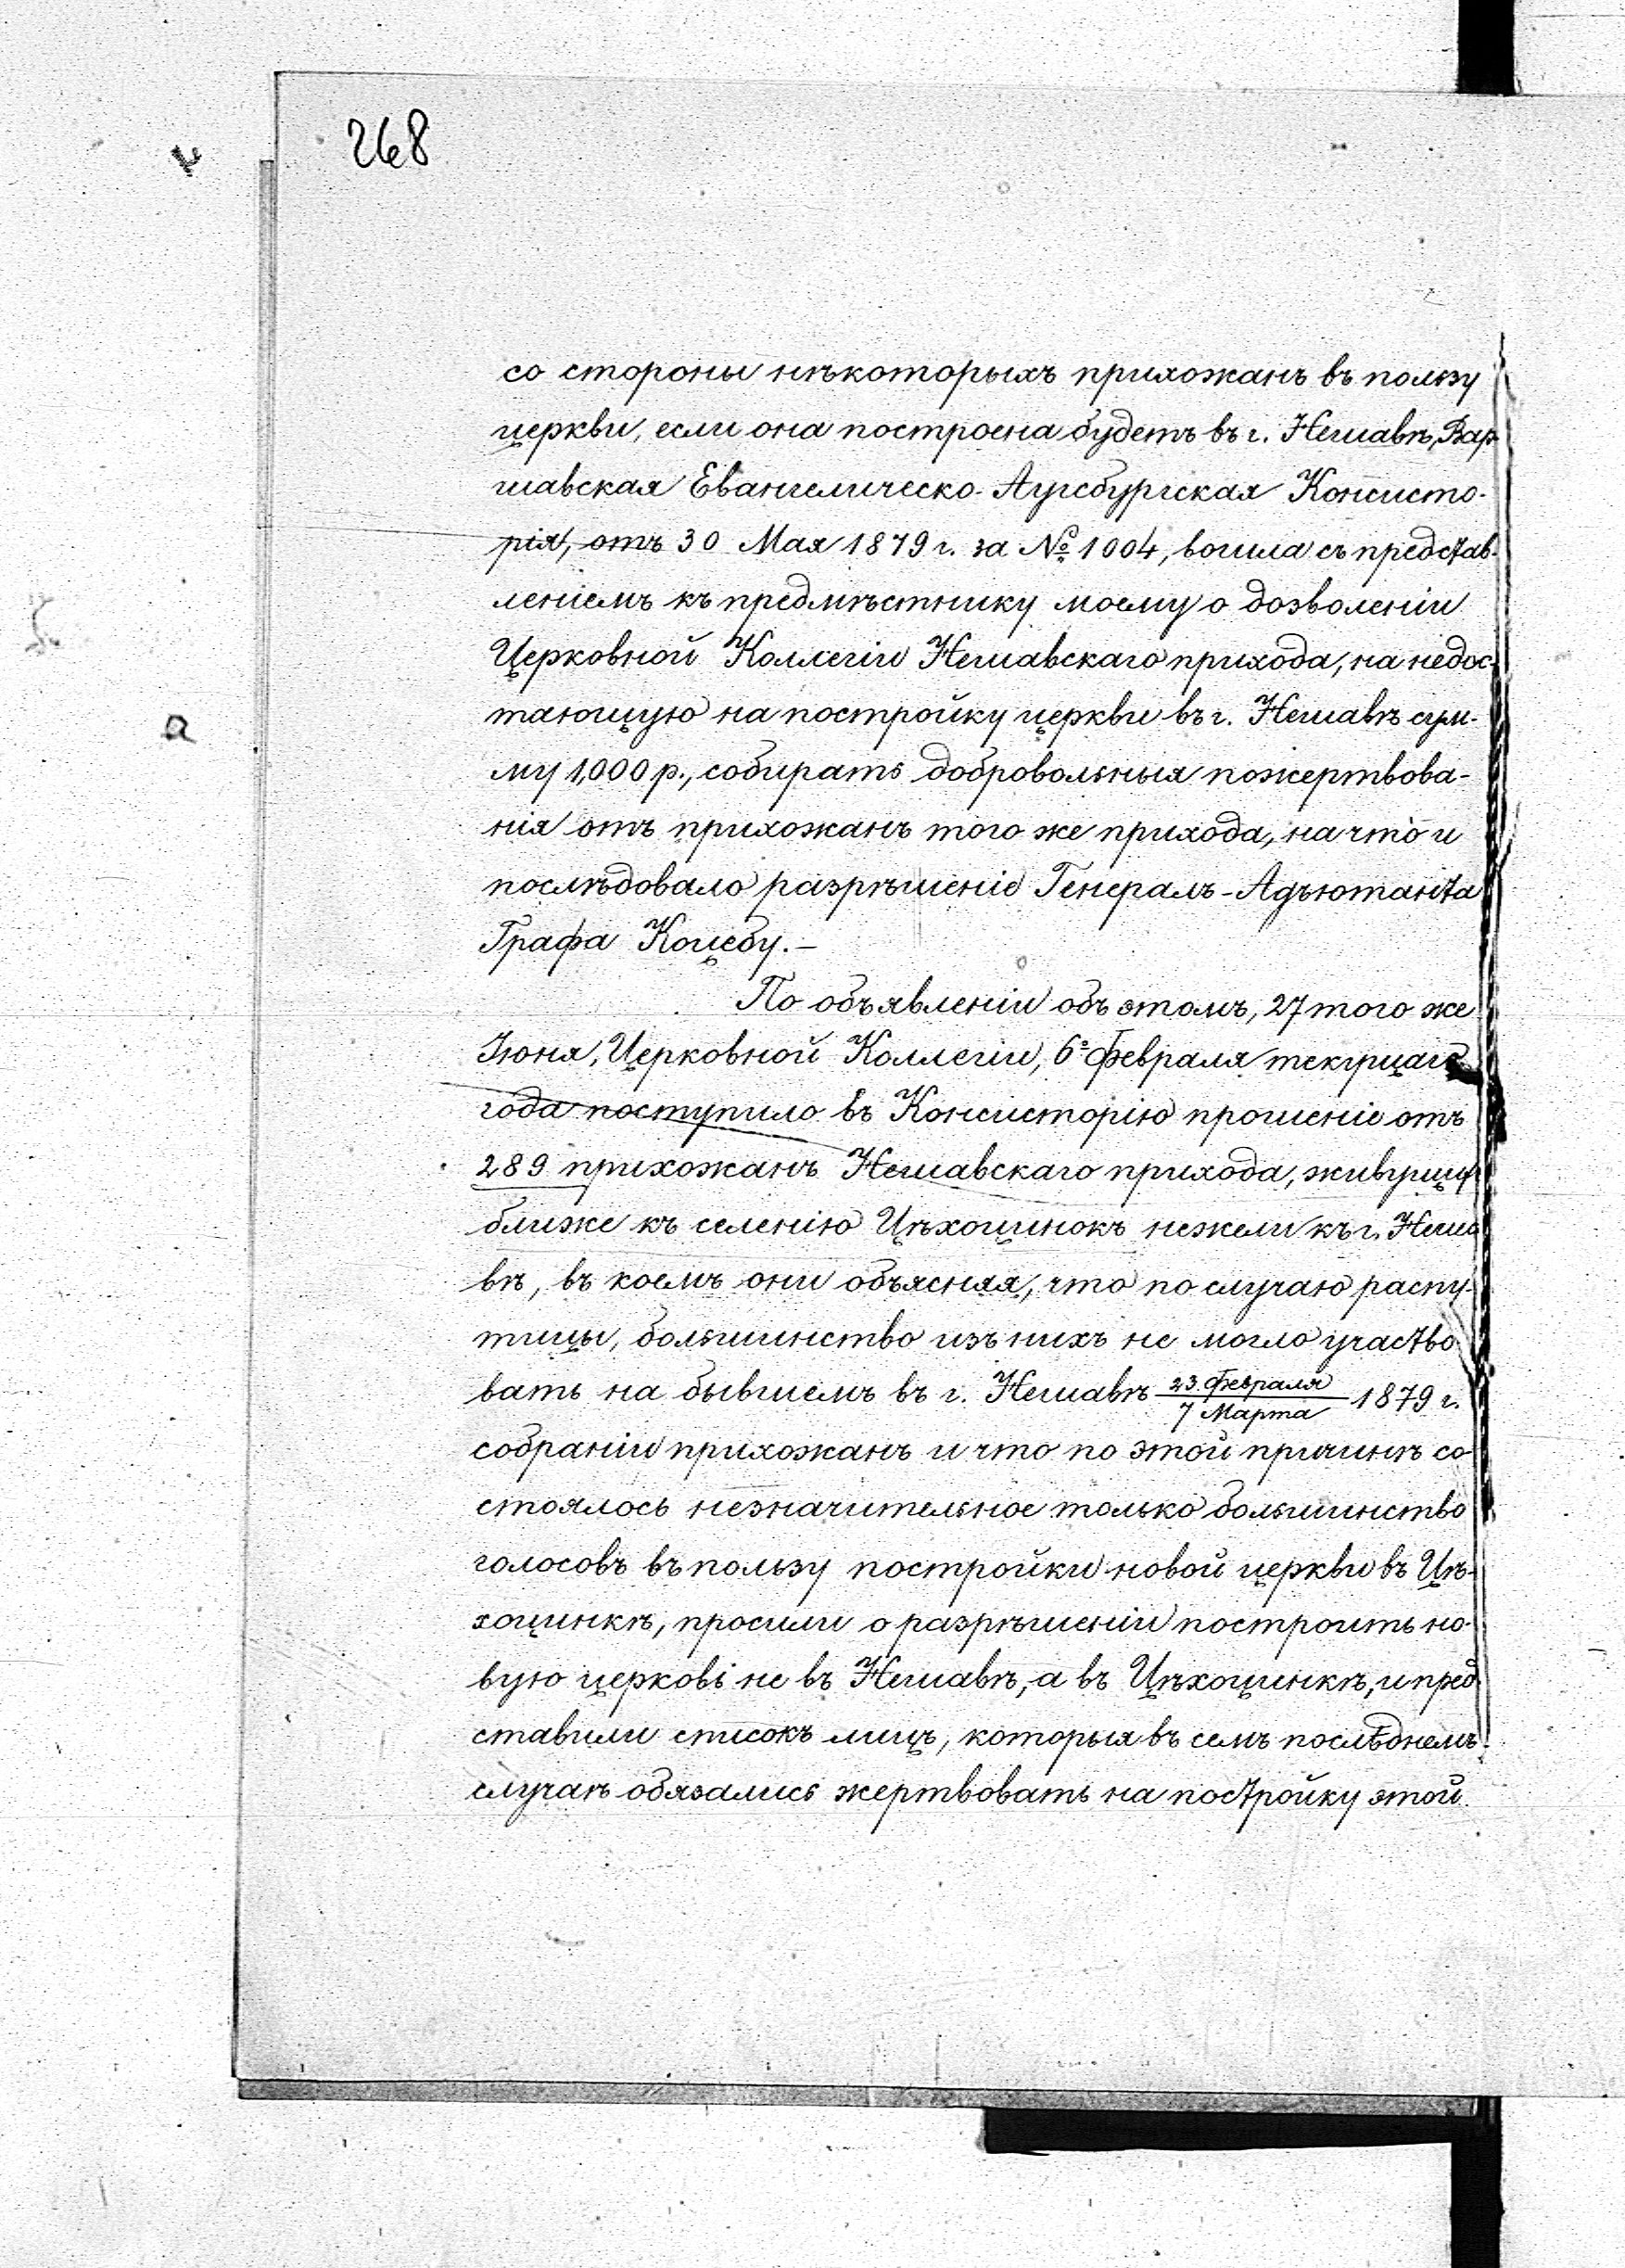 268
со стороны нѣкоторыхъ прихожанъ въ пользу
церкви, если она построена будетъ въ г. Нешавѣ, Вар-
шавская Евангелическо-Аугсбургская Консисто-
рія, отъ 30 Мая 1879 г. за № 1004, вошла съ представ-
леніемъ къ предмѣстнику моему о дозволеніи
Церковной Коллегіи Нешавскаго прихода, на недос-
тающую на постройку церкви въ г. Нешавѣ сум-
му 1,000 р., собирать добровольныя пожертвова-
нія отъ прихожанъ того же прихода, на что и
послѣдовало разрѣшеніе Генералъ-Адъютанта
Графа Коцебу.—
По объявленіи объ этомъ, 27 того же
Іюня, Церковной Коллегіи, 6º Февраля текущаго
года поступило въ Консисторію прошеніе отъ
289 прихожанъ Нешавскаго прихода, живущихъ
ближе къ селенію Цѣхоцинокъ нежели къ г. Неша
вѣ, въ коемъ они объясняя, что по случаю распу-
тицы, большинство изъ нихъ не могло участво
вать на бывшемъ въ г. Нешавѣ 23 Февраля / 7 Марта 1879 г.
собраніи прихожанъ и что по этой причинѣ со-
стоялось незначительное только большинство
голосовъ въ пользу постройки новой церкви въ Цѣ-
хоцинкѣ, просили о разрѣшеніи построить но-
вую церковь не въ Нешавѣ, а въ Цѣхоцинкѣ, и пред
ставили списокъ лицъ, которыя въ семъ послѣднемъ
случаѣ обязались жертвовать на постройку этой